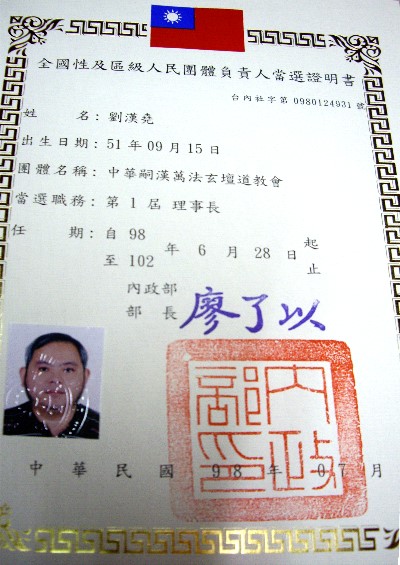 全國性及區級人民團體負責人當選證明書
台內社字第 0980124931 號
姓名：劉漢堯
出生日期：51年09月15日
團體名稱：中華嗣漢萬法玄壇道教會
當選職務：第1屆 理事長
任期：自98年6月28日起
至102年6月28日止
內政部
部長 廖了以
內政部印
中華民國98年07月